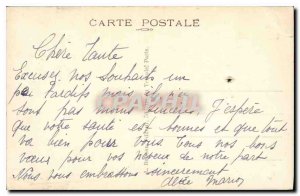 CARTE POSTALE
Chère Tante
Excusez nos souhaits un
peu tardifs mais ils ne
sont pas moins sincères. J'espère
que votre santé est bonnes et que tout
va bien pour vous Tous nos bons
vœux pour vos de notre part
Nous vous embrassons sincèrement